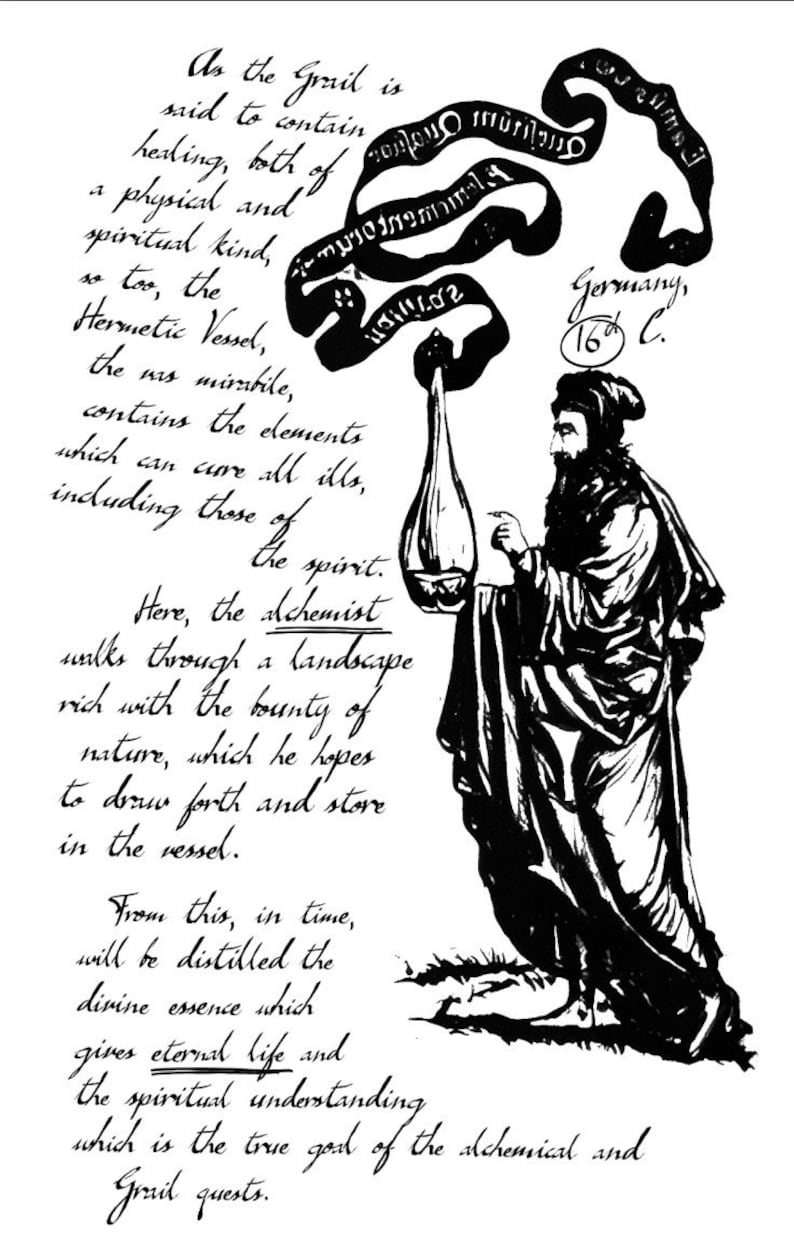 As the Grail is
said to contain
healing, both of
a physical and
spiritual kind,
so too, the
Hermetic Vessel,
the vas mirabile,
contains the elements
which can cure all ills,
including those of
the spirit.
Here, the alchemist
walks through a landscape
rich with the bounty of
nature, which he hopes
to draw forth and store
in the vessel.
From this, in time,
will be distilled the
divine essence which
gives eternal life and
the spiritual understanding
which is the true goal of the alchemical and
Grail quests.
Eamus
Quesitum Quatuor
elementorum
naturas
Germany,
16th C.